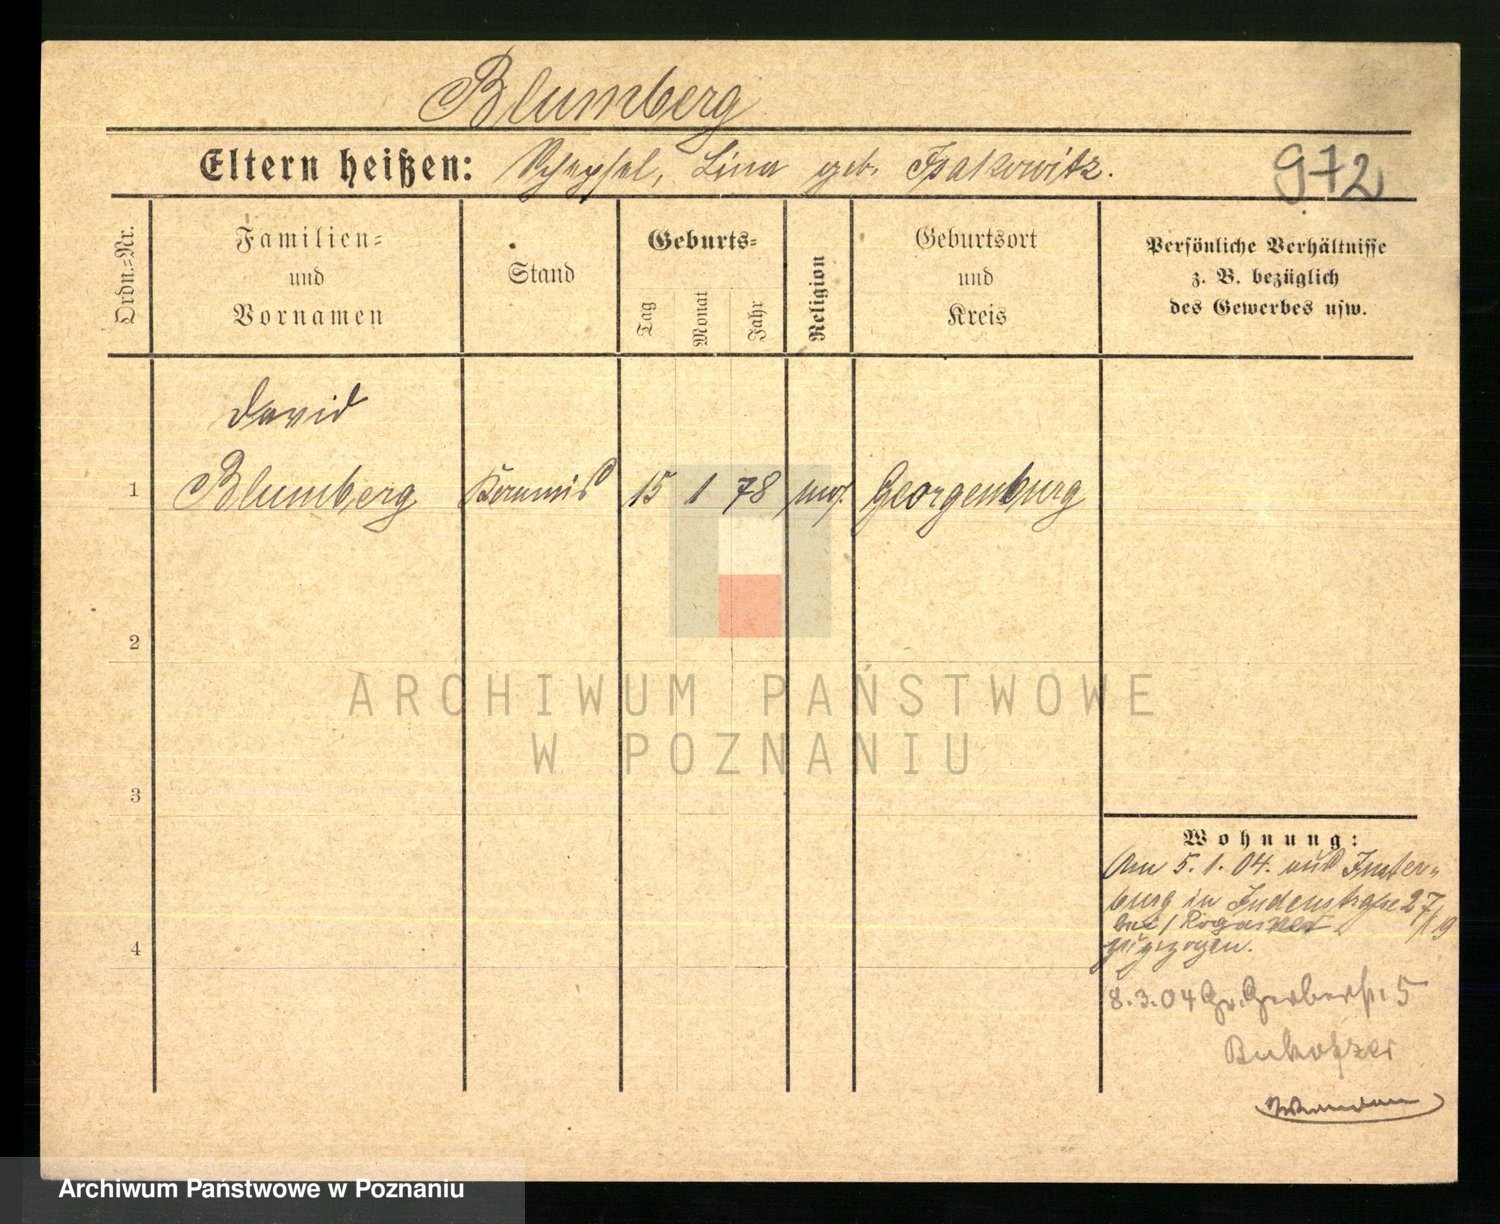 Blumberg
Eltern heißen: Schepsel, Lina geb. Isakowitz.
972
Ordn.=Nr.
Familien=
und
Vornamen
Stand
Geburts=
Tag
Monat
Jahr
Religion
Geburtsort
und
Kreis
Persönliche Verhältnisse
z. B. bezüglich
des Gewerbes usw.
David
1 Blumberg Kommis 15 1 78 mos. Georgenburg
2
3
4
Wohnung:
Am 5. 1. 04. aus Inster=
burg in Judenstraße 27/19
bei
zugezogen.
8.3.04 Gr. Gerberst. 5
ARCHIWUM PAŃSTWOWE
W POZNANIU
Archiwum Państwowe w Poznaniu